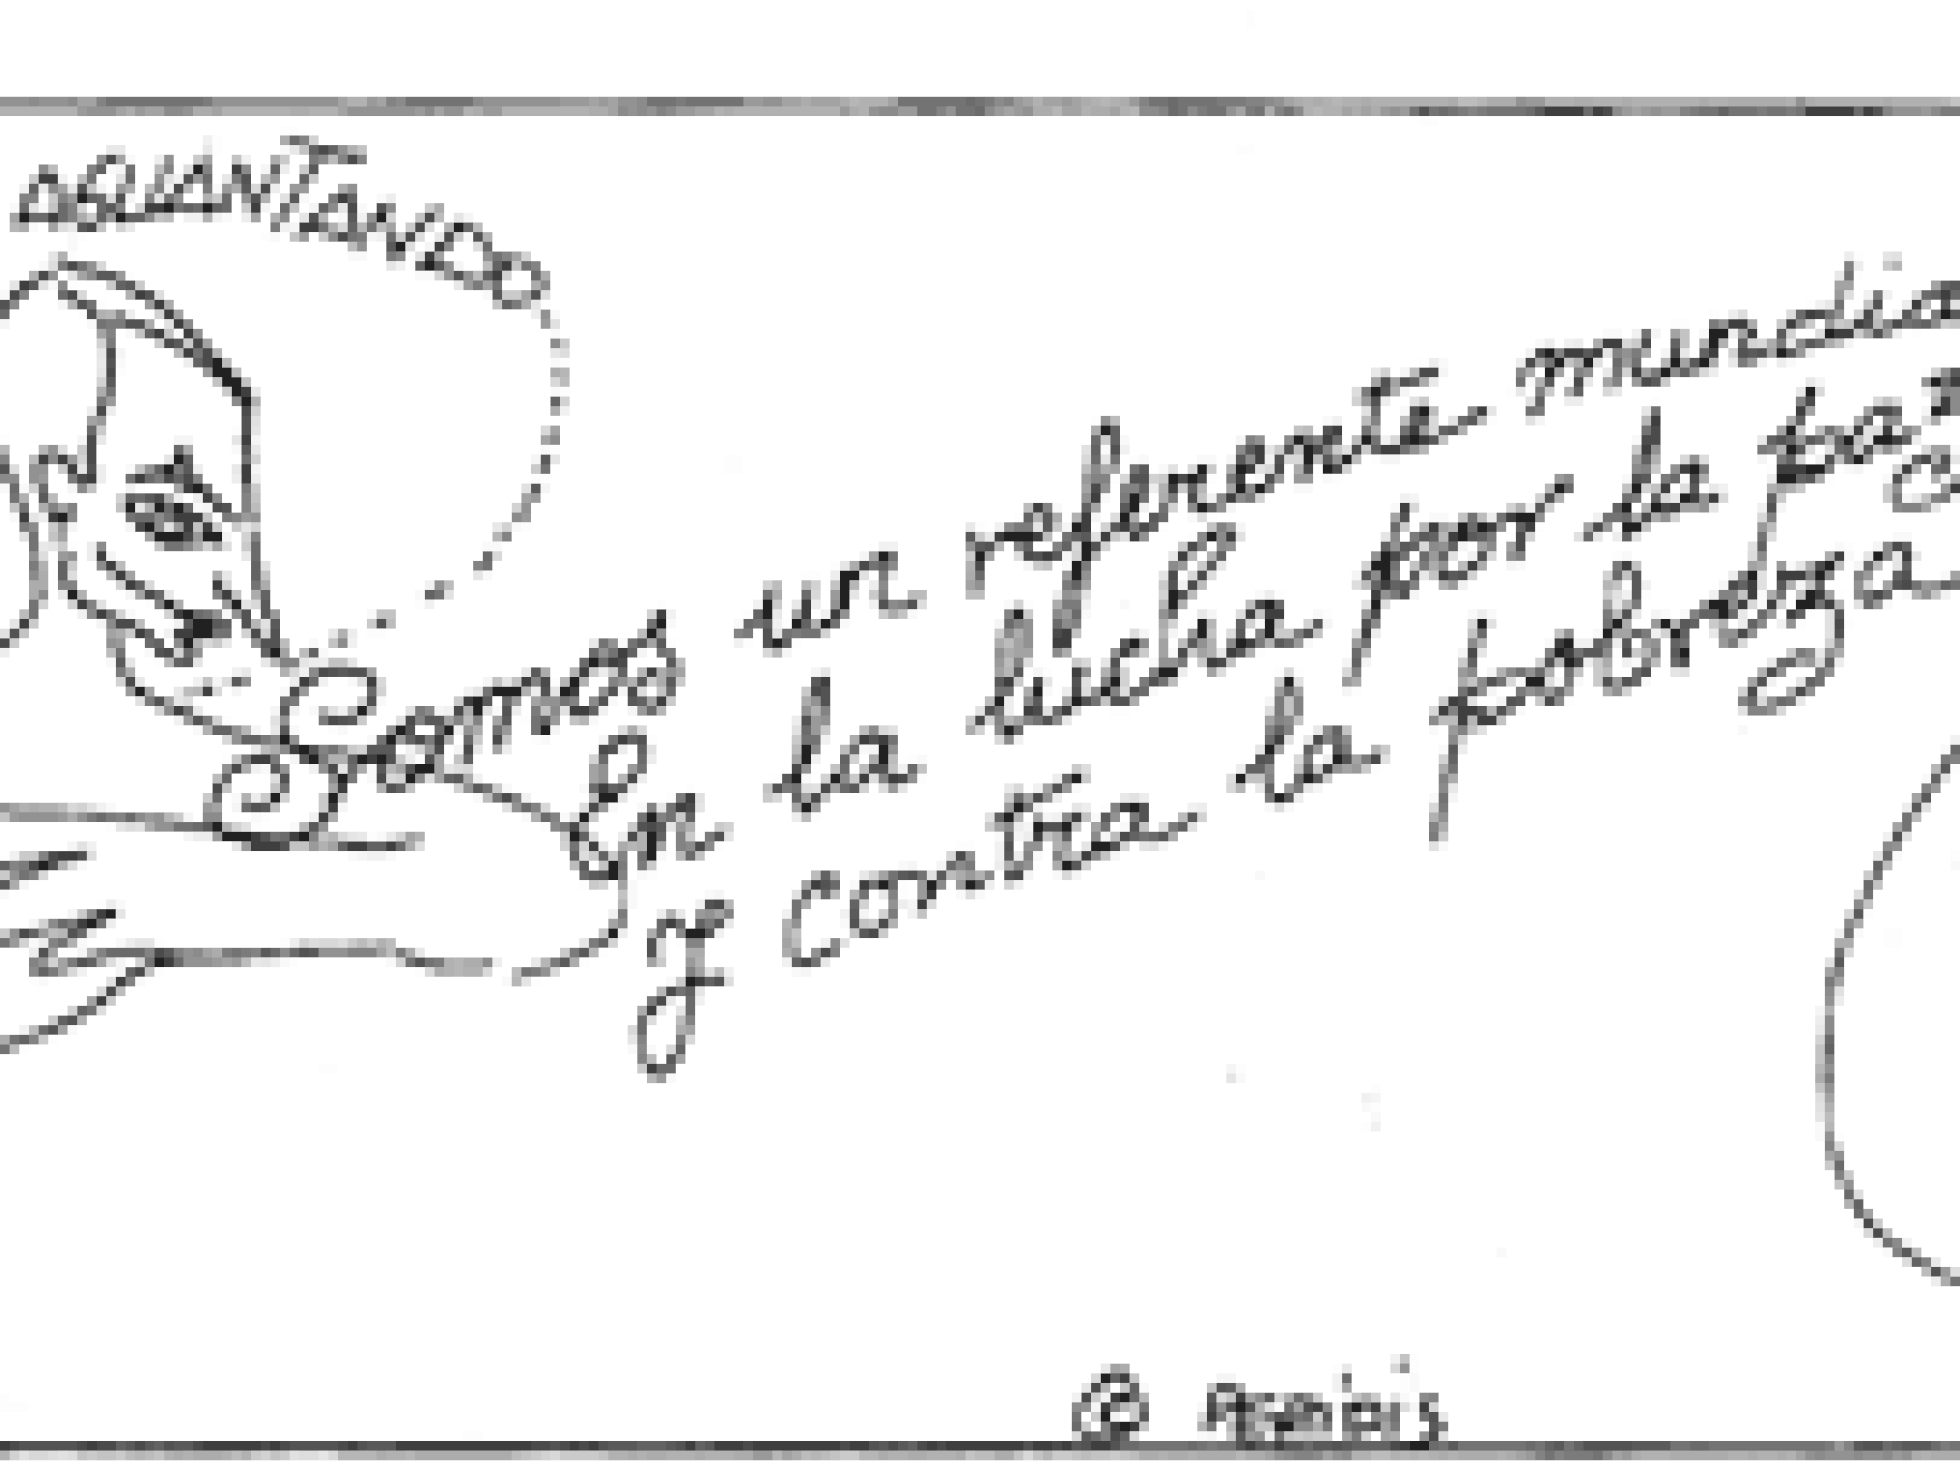 AGUANTANDO
Somos un referente mundia
En la lucha por la paz
y contra la pobreza
©